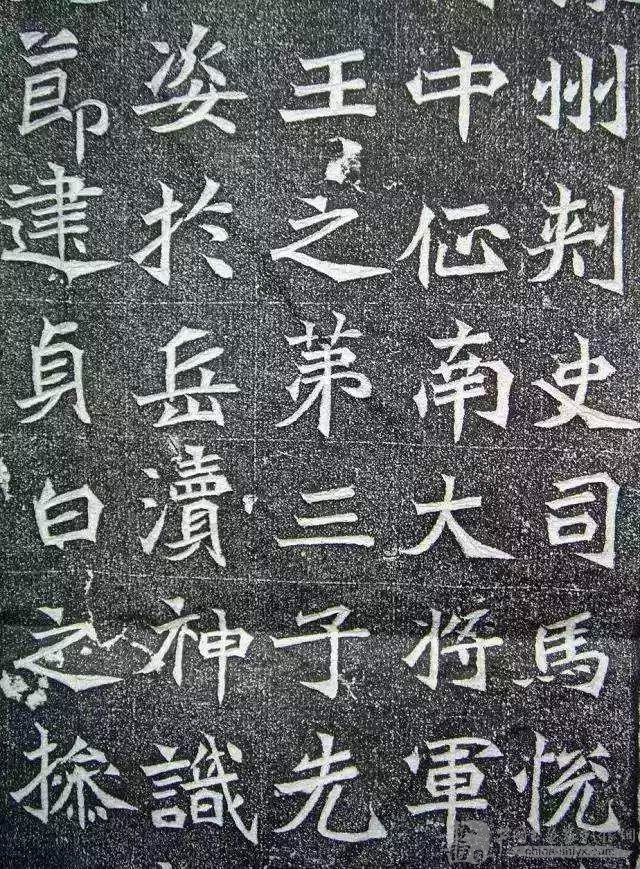 州刾史司馬悅
中征南大將軍
王之第三子先
姿於岳瀆神識
節建貞白之操